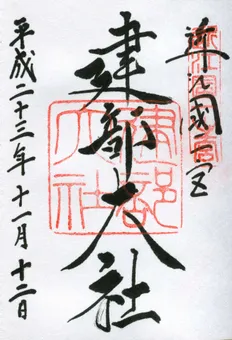 近江國一宮
建部大社
平成二十三年十一月十二日
建部大社